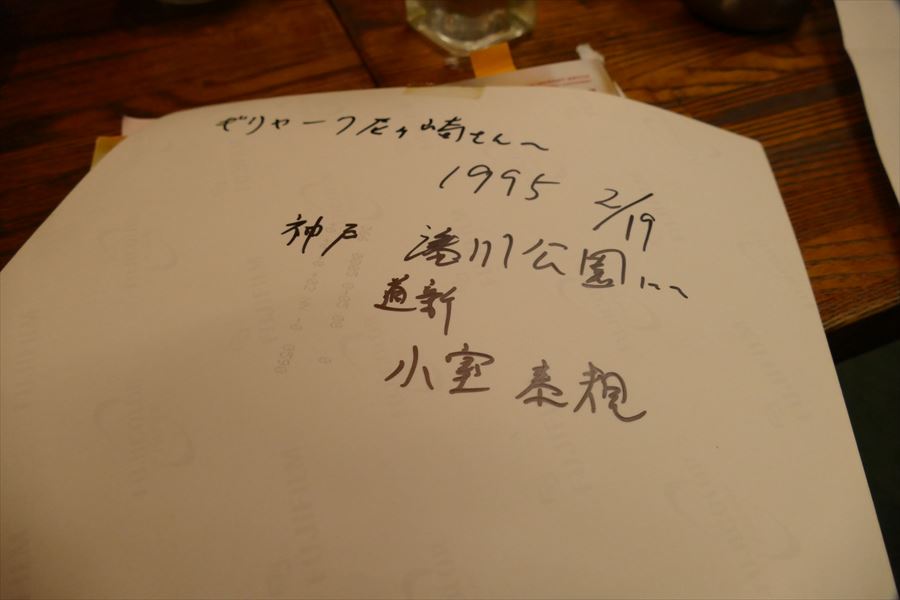 ギリヤーク尼ヶ崎さん〜
1995 2/19
神戸 湊川公園にて
道新
小室 泰規